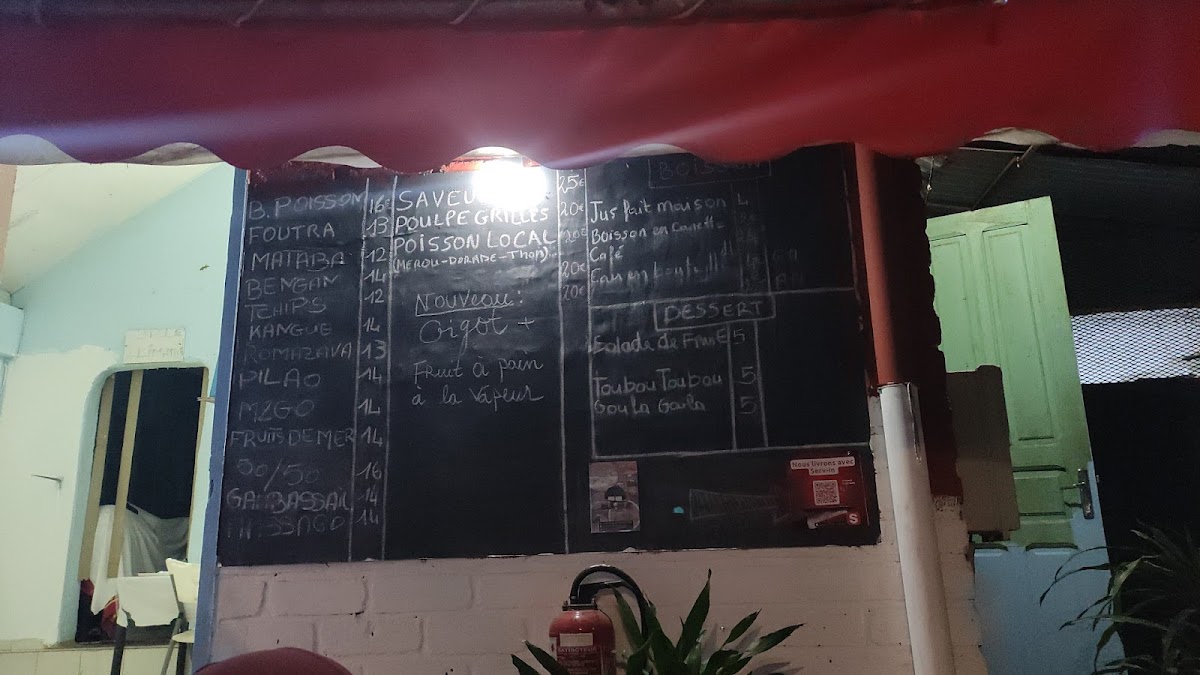 B. POISSON 16€
FOUTRA 13
MATABA 12
BENGAM 14
TCHIPS 12
KANGUE 14
ROMAZAVA 13
PILAO 14
M2GO 14
FRUITS DE MER 14
50/50 16
14
14
25€
POULPE GRILLÉS 20€
POISSON LOCAL 20€
(MEROU-DORADE-THON)
20€
20€
Nouveau:
Gigot +
Fruit à pain
a la vapeur
BOISSON
Jus fait maison 4
Boisson en Canette
Café
DESSERT
Salade de Fruit 5
Toubou Toubou 5
Goula Goula 5
Nous livrons avec